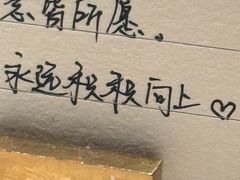 皆所愿。
永远积积向上♡